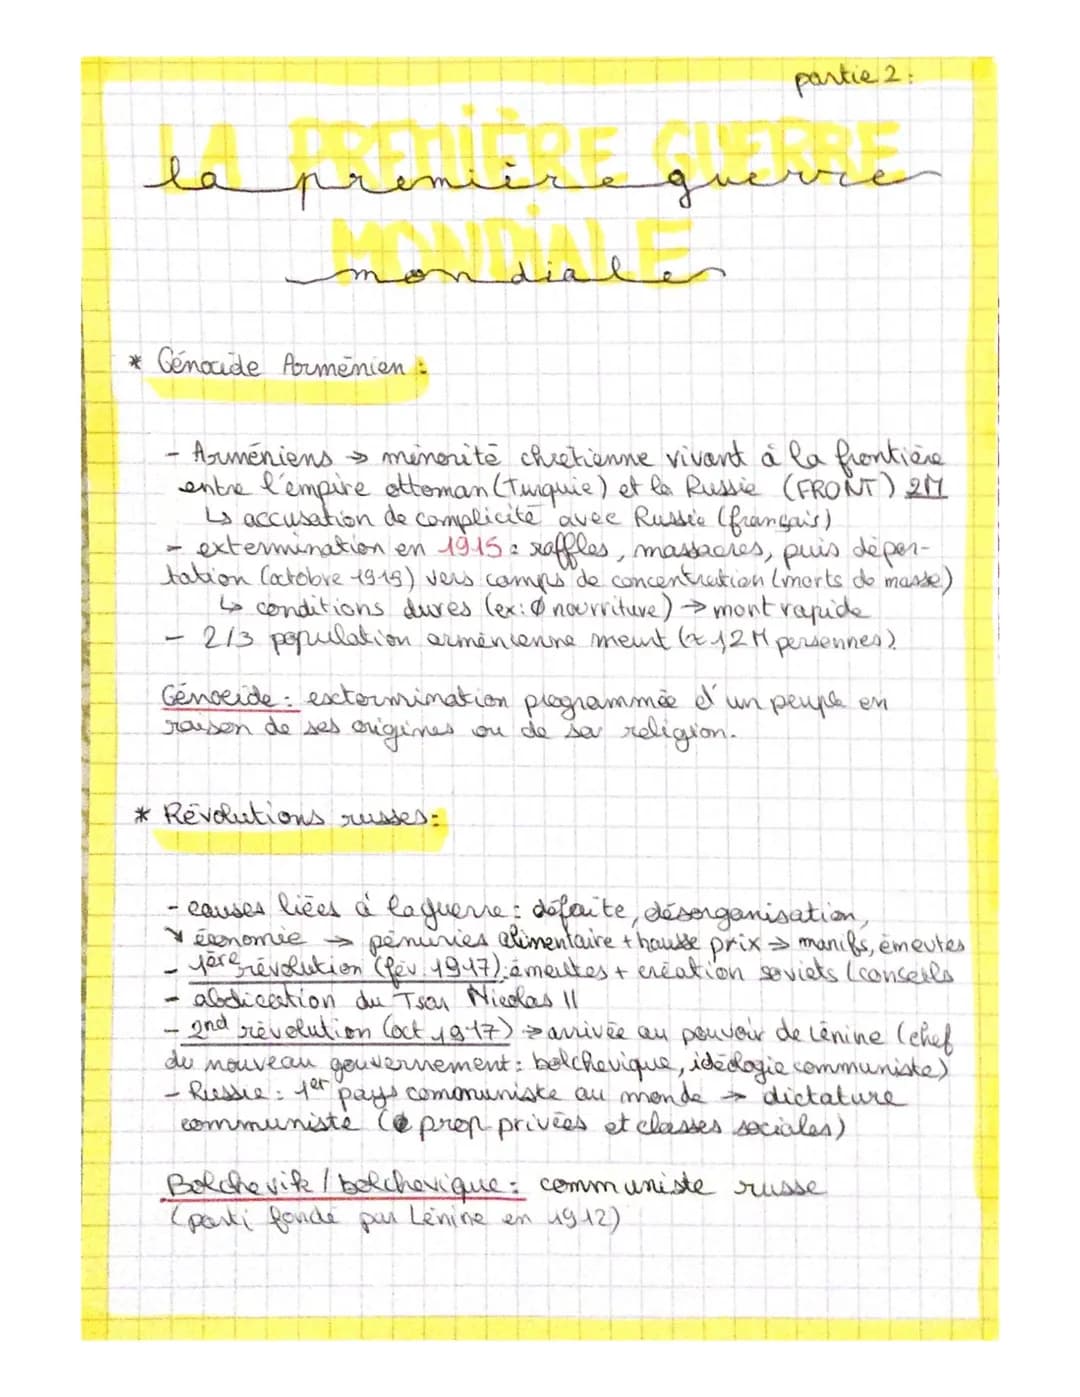 partie 2:
LA PREMIÈRE GUERRE
la première guerre
MONDIALE
mondiale
* Génocide Arménien :
- Arméniens → minorité chrétienne vivant à la frontière
entre l'empire ottoman (Turquie) et la Russie (FRONT) 2M
↳ accusation de complicité avec Russie (français)
- extermination en 1915 : raffles, massacres, puis dépor-
tation (octobre 1915) vers camps de concentration (morts de masse)
↳ conditions dures (ex: Ø nourriture) → mort rapide
- 2/3 population arménienne meurt (≈ 1,2M personnes).
Génocide : extermination programmée d'un peuple en
raison de ses origines ou de sa religion.
* Révolutions russes:
- causes liées à la guerre : défaite, désorganisation,
↘ économie → pénuries alimentaire + hausse prix → manifs, émeutes
- 1ère révolution (fév 1917) : émeutes + création soviets (conseils
- abdication du Tsar Nicolas II
- 2nd révolution (oct 1917) → arrivée au pouvoir de Lénine (chef
du nouveau gouvernement : bolchevique, idéologie communiste)
- Russie : 1er pays communiste au monde → dictature
communiste (Ø prop. privées et classes sociales)
Bolchevik / bolchevique : communiste russe
(parti fondé par Lénine en 1912)